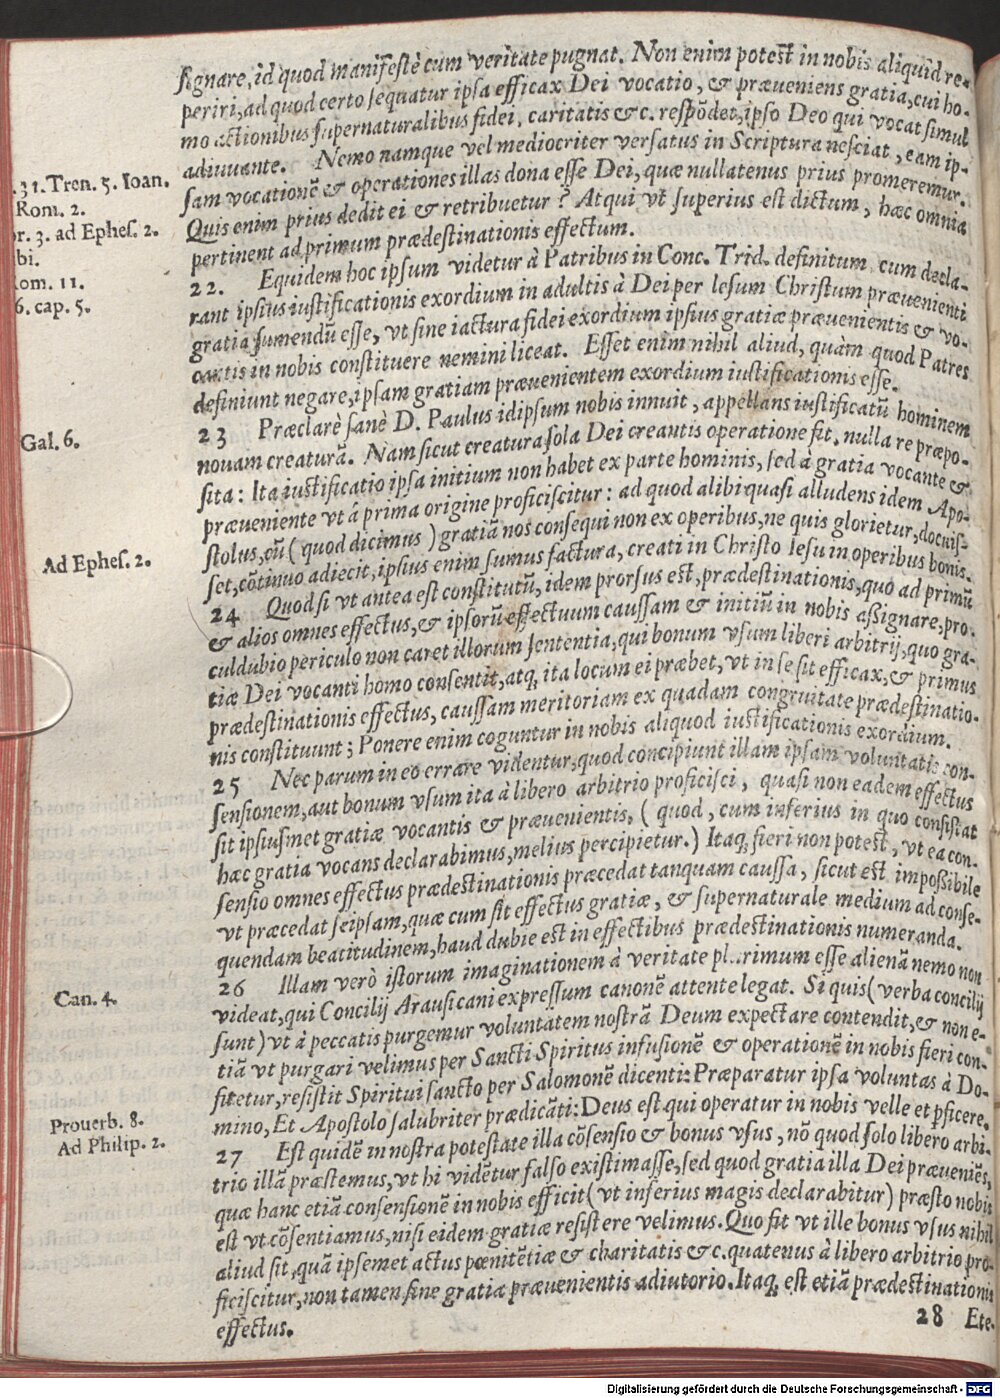 ſignare, id quod manifeſtè cum veritate pugnat. Non enim poteſt in nobis aliquid re-
periri, ad quod certo ſequatur ipſa efficax Dei vocatio, & præueniens gratia, cui ho-
mo actionibus ſupernaturalibus fidei, caritatis &c. reſpōdet, ipſo Deo qui vocat ſimul
adiuuante. Nemo namque vel mediocriter verſatus in Scriptura neſciat, eam ip-
ſam vocationē & operationes illas dona eſſe Dei, quæ nullatenus prius promeremur.
Quis enim prius dedit ei & retribuetur? Atqui vt ſuperius eſt dictum, hæc omnia
pertinent ad primum prædeſtinationis effectum.
. 31. Tren. 5. Ioan.
Rom. 2.
r. 3. ad Epheſ. 2.
bi.
om. 11.
6. cap. 5.
22. Equidem hoc ipſum videtur à Patribus in Conc. Trid. definitum, cum decla-
rant ipſius iuſtificationis exordium in adultis à Dei per Ieſum Chriſtum præuenienti
gratia ſumendū eſſe, vt ſine iactura fidei exordium ipſius gratiæ præuenientis & vo-
cantis in nobis conſtituere nemini liceat. Eſſet enim nihil aliud, quàm quod Patres
definiunt negare, ipſam gratiam præuenientem exordium iuſtificationis eſſe.
23 Præclarè ſanè D. Paulus idipſum nobis innuit, appellans iuſtificatū hominem
nouam creaturā. Nam ſicut creatura ſola Dei creantis operatione fit, nulla re præpo-
ſita: Ita iuſtificatio ipſa initium non habet ex parte hominis, ſed à gratia vocante &
præueniente vt á prima origine proficiſcitur: ad quod alibi quaſi alludens idem Apo-
ſtolus, cū (quod dicimus) gratiā nos conſequi non ex operibus, ne quis glorietur, docuiſ-
ſet, cōtinuo adiecit, ipſius enim ſumus factura, creati in Chriſto Ieſu in operibus bonis.
Gal. 6.
Ad Epheſ. 2.
24 Quodſi vt antea eſt conſtitutū, idem prorſus eſt, prædeſtinationis, quo ad primū
& alios omnes effectus, & ipſorū effectuum cauſſam & initiū in nobis aſſignare, pro-
culdubio periculo non caret illorum ſententia, qui bonum vſum liberi arbitrij, quo gra-
tiæ Dei vocanti homo conſentit, atq; ita locum ei præbet, vt in ſe ſit efficax, & primus
prædeſtinationis effectus, cauſſam meritoriam ex quadam congruitate prædeſtinatio-
nis conſtituunt; Ponere enim coguntur in nobis aliquod iuſtificationis exordium.
25 Nec parum in eo errare videntur, quod concipiunt illam ipſam voluntatis con-
ſenſionem, aut bonum vſum ita à libero arbitrio proficiſci, quaſi non eadem effectus
ſit ipſiuſmet gratiæ vocantis & præuenientis, (quod, cum inferius in quo conſiſtat
hæc gratia vocans declarabimus, melius percipietur.) Itaq; fieri non poteſt, vt ea con-
ſenſio omnes effectus prædeſtinationis præcedat tanquam cauſſa, ſicut eſt impoßibile
vt præcedat ſeipſam, quæ cum ſit effectus gratiæ, & ſupernaturale medium ad conſe-
quendam beatitudinem, haud dubie eſt in effectibus prædeſtinationis numeranda.
26 Illam verò iſtorum imaginationem à veritate plurimum eſſe alienā nemo non
videat, qui Concilij Arauſicani expreſſum canonē attente legat. Si quis (verba concilij
ſunt) vt à peccatis purgemur voluntatem noſtrā Deum expectare contendit, & non e-
tiā vt purgari velimus per Sancti Spiritus infuſionē & operationē in nobis fieri con-
fitetur, reſiſtit Spiritui ſancto per Salomonē dicenti: Præparatur ipſa voluntas à Do-
mino, Et Apoſtolo ſalubriter prædicāti: Deus eſt qui operatur in nobis velle et pficere.
Can. 4.
Prouerb. 8.
Ad Philip. 2.
27 Eſt quidē in noſtra poteſtate illa cōſenſio & bonus vſus, nō quod ſolo libero arbi-
trio illā præſtemus, vt hi vidētur falſo exiſtimaſſe, ſed quod gratia illa Dei præueniēs,
quæ hanc etiā conſenſionē in nobis efficit (vt inferius magis declarabitur) præſto nobis
eſt vt cōſentiamus, niſi eidem gratiæ reſiſtere velimus. Quo fit vt ille bonus vſus nihil
aliud ſit, quā ipſemet actus pœnitētiæ & charitatis &c. quatenus à libero arbitrio pro-
ficiſcitur, non tamen ſine gratiæ præuenientis adiutorio. Itaq; eſt etiā prædeſtinationis
effectus.
28 Ete-
Digitalisierung gefördert durch die Deutsche Forschungsgemeinschaft - DFG